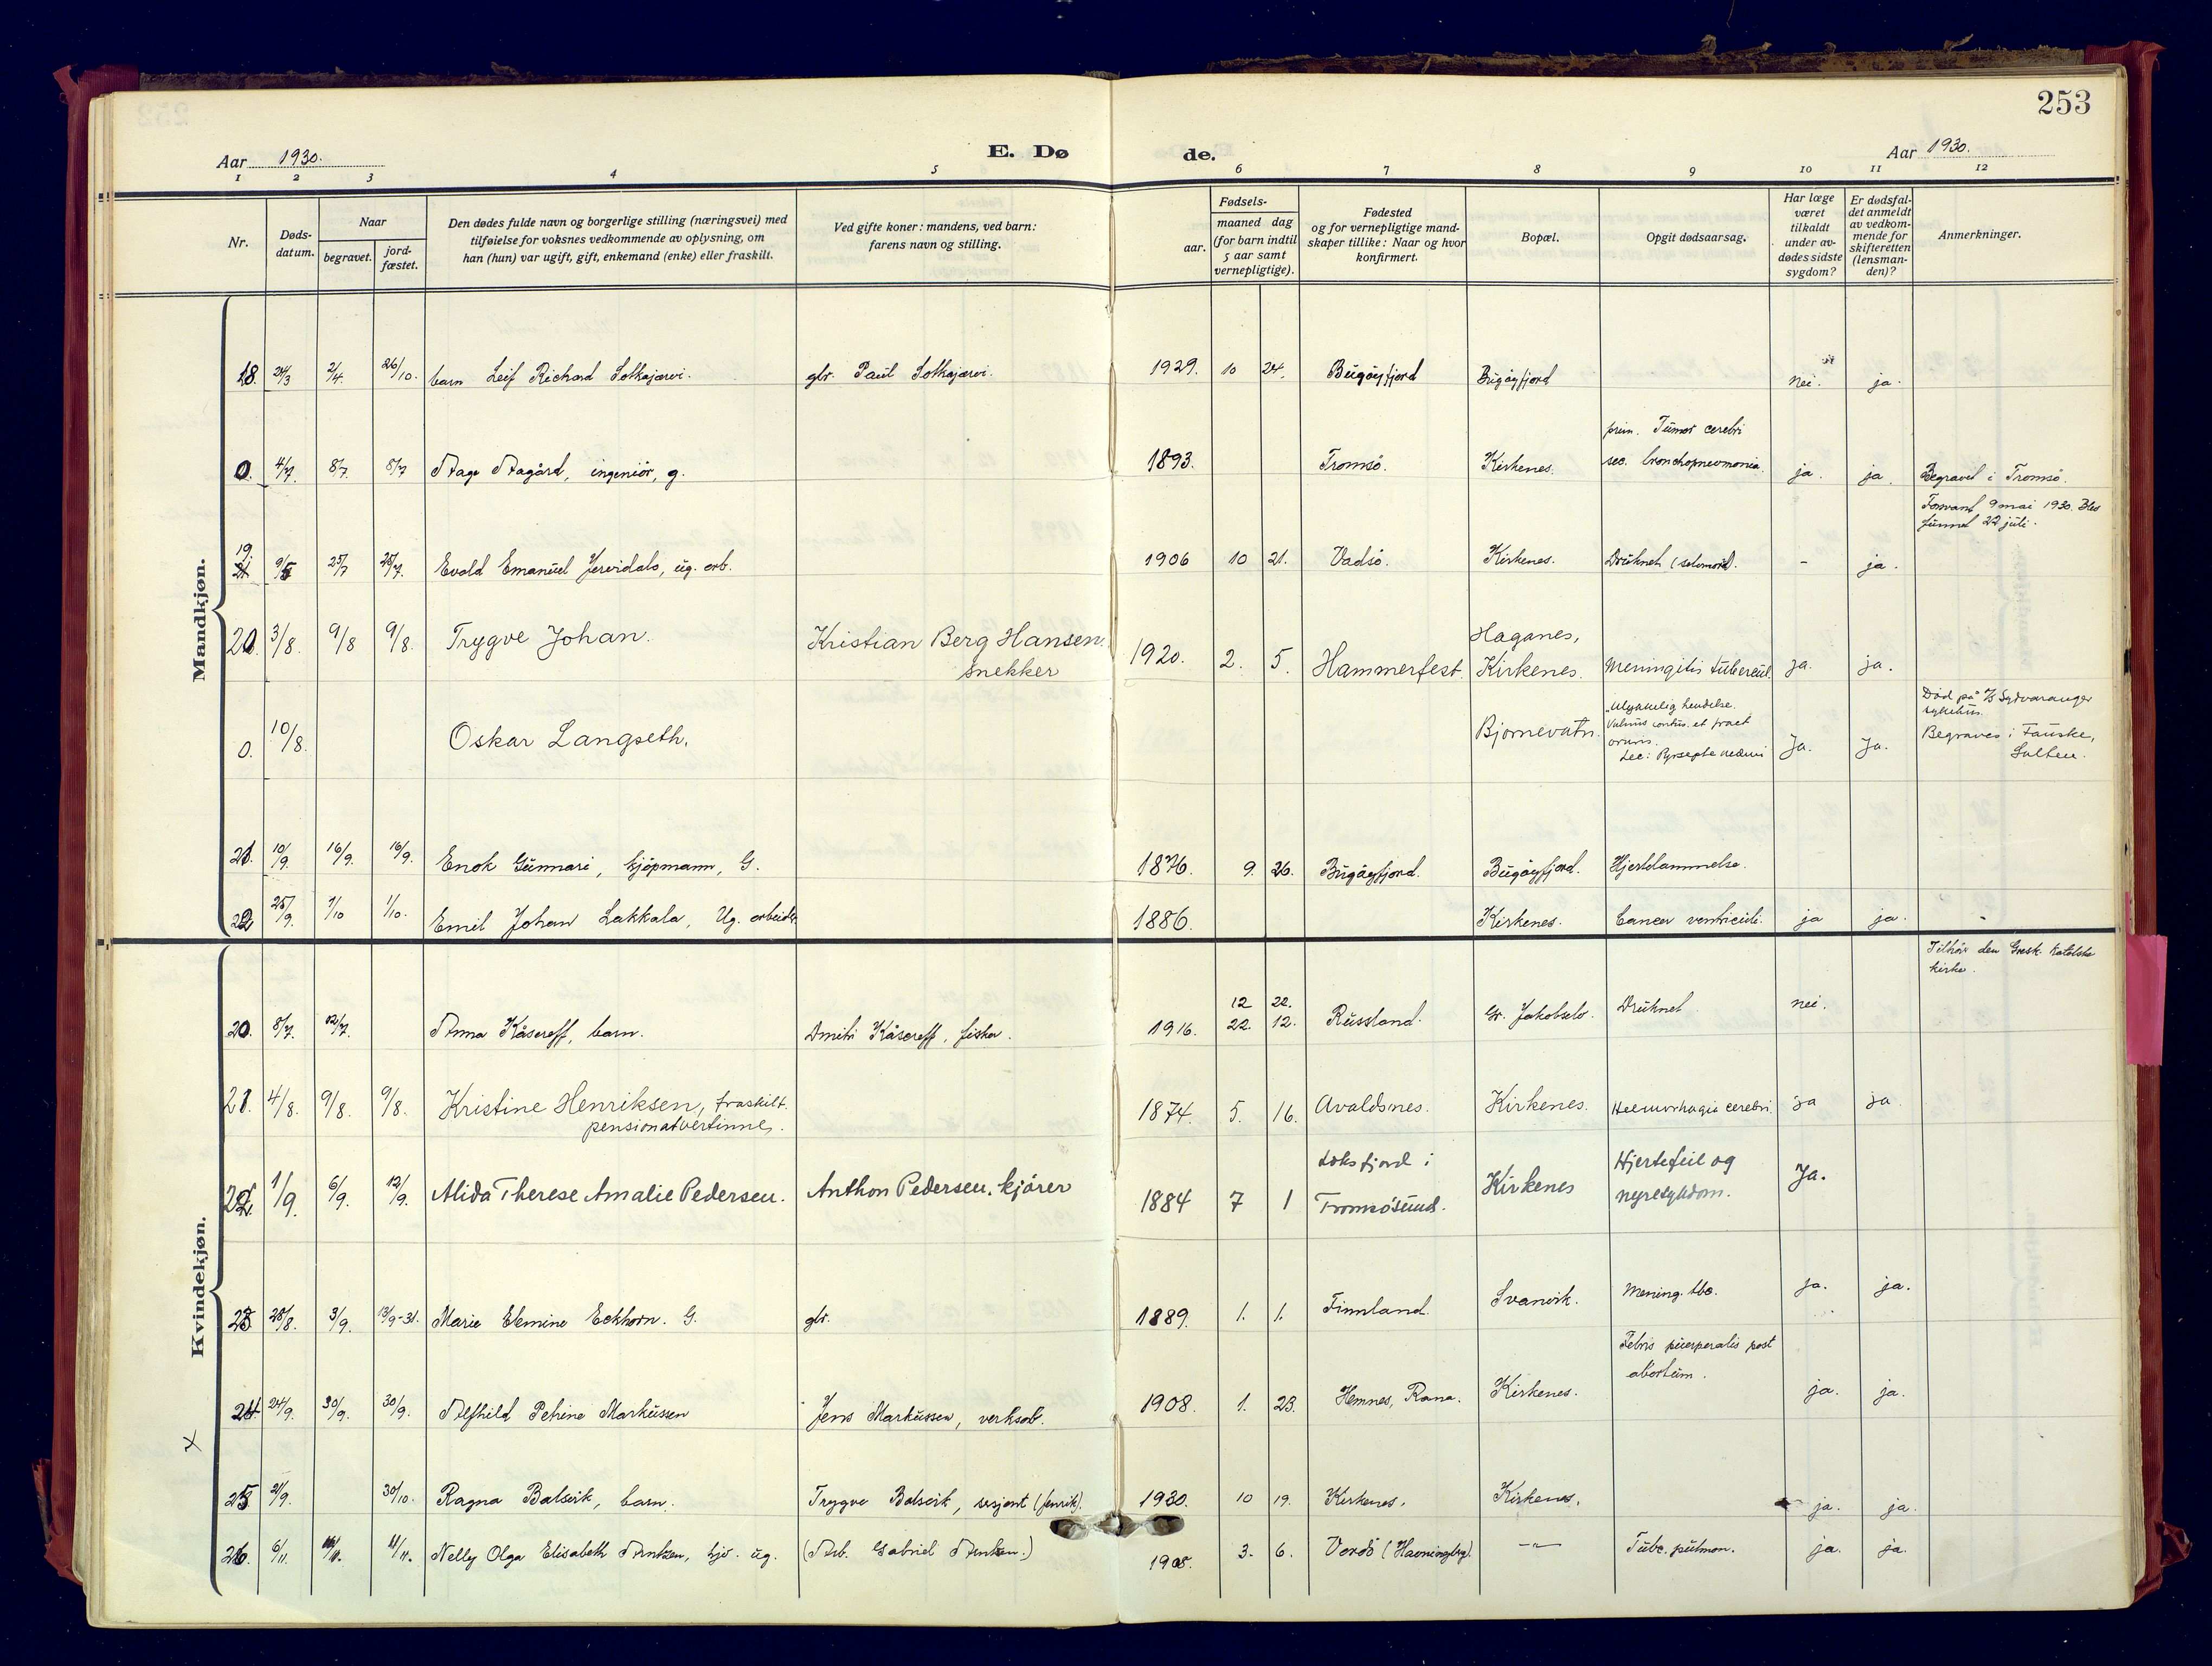 253
Aar 1930. E. Dø de. Aar 1930.
1 2 3 4 5 6 7 8 9 10 11 12
Nr.
Døds-
datum.
Naar
begravet.
jord-
fæstet.
Den dødes fulde navn og borgerlige stilling (næringsvei) med
tilføielse for voksnes vedkommende av oplysning, om
han (hun) var ugift, gift, enkemand (enke) eller fraskilt.
Ved gifte koner: mandens, ved barn:
farens navn og stilling.
Fødsels-
aar.
maaned dag
(for barn indtil
5 aar samt
vernepligtige).
Fødested
og for vernepligtige mand-
skaper tillike: Naar og hvor
konfirmert.
Bopæl.
Opgit dødsaarsag.
Har læge
været
tilkaldt
under av-
dødes sidste
sygdom?
Er dødsfal-
det anmeldt
av vedkom-
mende for
skifteretten
(lensman-
den)?
Anmerkninger.
Mandkjøn.
18. 24/3 2/4. 26/10. barn Leif Richard Sotkajærvi. gbr. Paul Sotkajærvi. 1929. 10 24. Bugøyfjord Bugøyfjord nei. ja.
prim. Tumor cerebri
0. 4/7. 8/7 8/7 Aage Aagård, ingeniør, g. 1893. Tromsø. Kirkenes. sec. bronchopnevmonia. ja. ja. Begravet i Tromsø.
Forsvant 9 mai 1930. Blev
funnet 22 juli.
19. 9/5 25/7 25/7. Evald Emanuel ug. arb. 1906 10 21. Vadsø. Kirkenes. Druknet (selvmord). - ja.
20. 3/8. 9/8 9/8. Trygve Johan. Kristian Berg Hansen.
snekker
1920. 2. 5. Hammerfest.
Haganes,
Kirkenes. Meningitis tubercul. ja. ja.
0. 10/8. Oskar Langseth. Bjørnevatn.
Ulykkelig hendelse.
Vulnus contus. et fract
cruris.
Ja. Ja.
Død på A/S Sydvaranger
sykehus.
Begraves i Fauske,
Salten.
21. 10/9. 16/9. 16/9. Enok Gunnari, kjøpmann, G. 1876. 9. 26. Bugøyfjord. Bugøyfjord. Hjertelammelse.
22 25/9. 1/10 1/10. Emil Johan Lakkala, Ug. arbeider 1886. Kirkenes. Cancer ventriculi. ja ja.
Kvindekjøn.
Tilhør den Gresk. katolske
kirke.
12 22.
20. 8/7. 12/7. Anna Kåsereff, barn. Dmitri Kåsereff, fisker. 1916. 22. 12. Russland. Gr. Jakobselv. Druknet nei.
21. 4/8. 9/8. 9/8. Kristine Henriksen, fraskilt.
pensionatvertinne.
1874. 5. 16. Avaldsnes. Kirkenes. Heemorhagia cerebri. ja ja.
22. 1/9. 6/9. 12/9. Alida Therese Amalie Pedersen. Anthon Pedersen, kjører 1884 7 1
Laksfjord i
Tromsøsund.
Kirkenes
Hjertefeil og
nyresykdom.
Ja.
23. 28/8. 3/9. 13/9-31. Marie Elemine Eckhorn. G. gbr. 1889. 1. 1. Finnland. Svanvik. Mening. tbc. ja. ja.
Febris puerperalis post
abortum.
24 24/9. 30/9. 30/9. Alfhild Petrine Markussen Jens Markussen, verksarb. 1908. 1. 23. Hemnes, Rana. Kirkenes. ja. ja.
X
25. 21/9. 30/10. Ragna Balsvik, barn. Trygve Balsvik, sersjant (fenrik). 1930. 10 19. Kirkenes. Kirkenes. ja. ja.
26. 6/11. 11/11. Nelly Olga Elisabeth Arntsen, hjv. ug. (Arb. Gabriel Arntsen.) 1908. 3. 6. Vardø (Havningberg). -"- Tubc. pulmon. ja. ja.